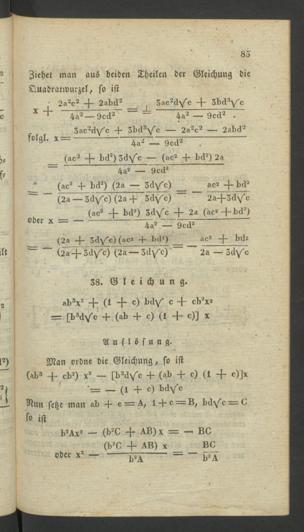 85
Ziehet man aus beiden Theilen der Gleichung die
Quadratwurzel, so ist
x + (2a²c² + 2abd²)/(4a² − 9cd²) = ± (3ac²d√c + 3bd³√c)/(4a² − 9cd²)
folgl. x = (3ac²d√c + 3bd³√c − 2a²c² − 2abd²)/(4a² − 9cd²)
= ((ac² + bd²) 3d√c − (ac² + bd²) 2a)/(4a² − 9cd²)
= − ((ac² + bd²) (2a − 3d√c))/((2a − 3d√c) (2a + 3d√c)) = − (ac² + bd²)/(2a + 3d√c)
oder x = − ((ac² + bd²) 3d√c + 2a (ac² + bd²))/(4a² − 9cd²)
= − ((2a + 3d√c) (ac² + bd²))/((2a + 3d√c) (2a − 3d√c)) = − (ac² + bd²)/(2a − 3d√c)
38. Gleichung.
ab³x² + (1 + c) bd√c + cb²x²
= [b³d√c + (ab + c) (1 + c)] x
Auflösung.
Man ordne die Gleichung, so ist
(ab³ + cb²) x² − [b³d√c + (ab + c) (1 + c)]x
= − (1 + c) bd√c
Nun setze man ab + c = A, 1 + c = B, bd√c = C
so ist
b²Ax² − (b²C + AB) x = − BC
oder x² − ((b²C + AB) x)/(b²A) = − BC/(b²A)